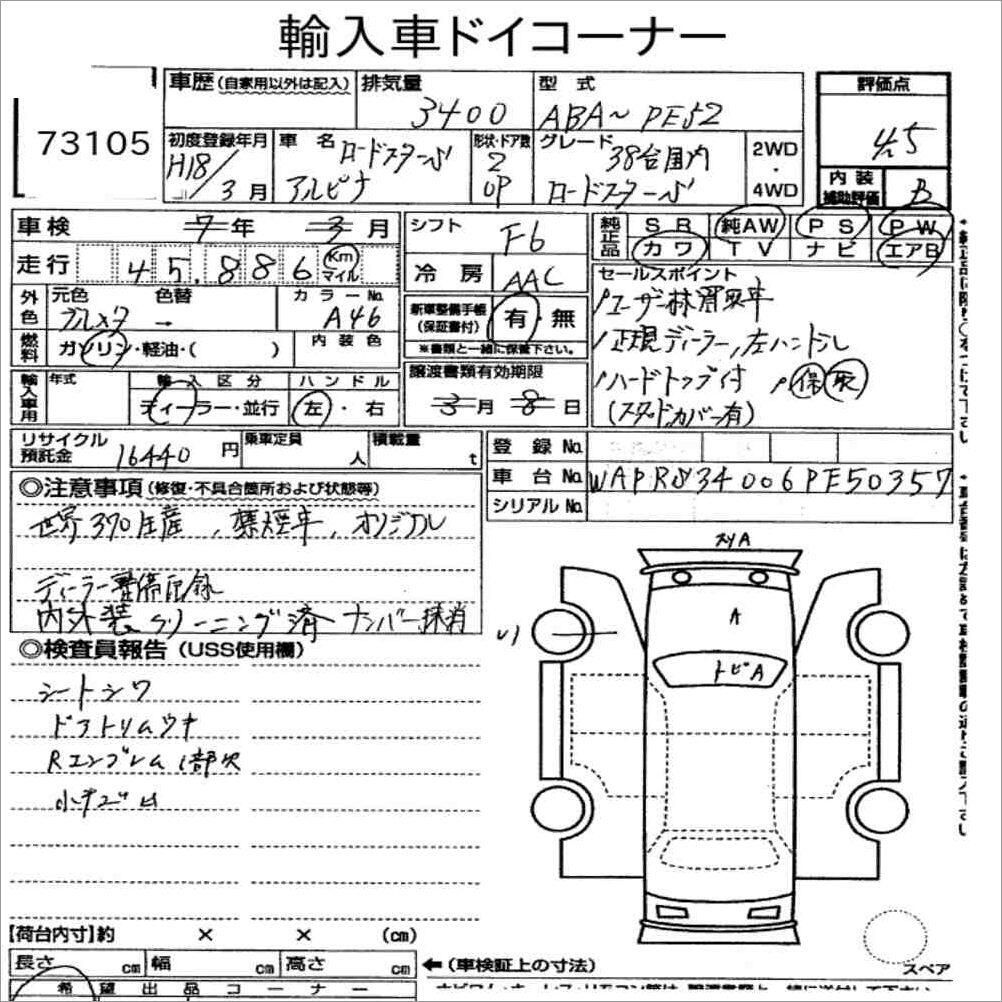 輸入車ドイコーナー
73105
車歴(自家用以外は記入)
排気量
3400
型式
ABA〜PE52
評価点
4.5
初度登録年月
H18/3月
車名
ロードスターS
アルピナ
形状・ドア数
2
OP
グレード
38台国内
ロードスターS
2WD
・
4WD
内装
補助評価
B
車検 7年 3月
走行 45,886 Km
マイル
シフト
F6
冷房 AAC
純正品
SR 純AW PS PW
カワ TV ナビ エアB
外色
元色 色替
ブルメタ →
カラーNo.
A46
新車整備手帳
(保証書付)
有・無
※書類と一緒に保管下さい。
燃料
ガソリン・軽油・( )
内装色
セールスポイント
ユーザー様買取車
正規ディーラー,左ハンドル
ハードトップ付 保 取
(スタンドカバー有)
輸入車用
年式
輸入区分
ディーラー・並行
ハンドル
左・右
譲渡書類有効期限
3月 8日
リサイクル
預託金
16440円
乗車定員
人
積載量
t
登録No.
車台No. WAPRS34006PE50357
シリアルNo.
◎注意事項(修復・不具合箇所および状態等)
世界370生産,禁煙車,オリジナル
ディーラー整備記録
内外装クリーニング済 ナンバー抹消
◎検査員報告(USS使用欄)
シートシワ
ドアトリムウキ
Rエンブレム1部欠
小キズ凹
スリA
A
トビA
【荷台内寸】約 × × (cm)
長さ cm 幅 cm 高さ cm
←(車検証上の寸法)
スペア
希望出品コーナー